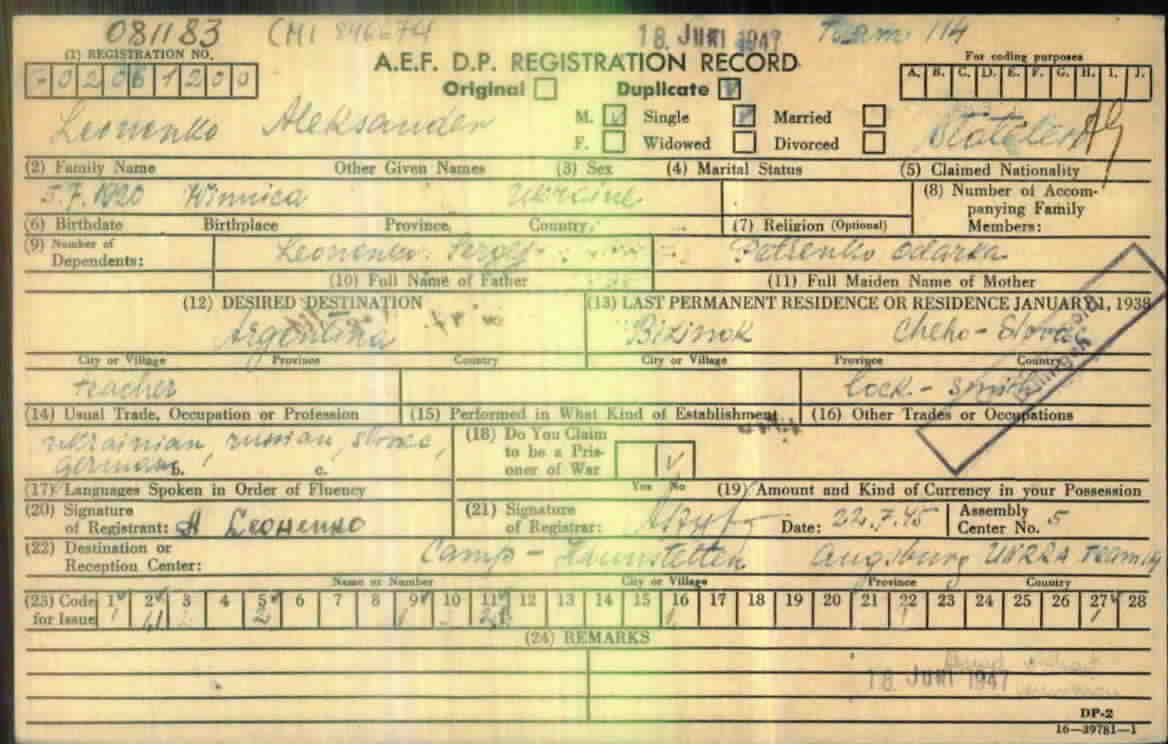 081183 CM1 18 JUNI 1947 Team 114
(1) REGISTRATION NO. For coding purposes
A.E.F. D.P. REGISTRATION RECORD A. B. C. D. E. F. G. H. I. J.
Original Duplicate
Leonenko Aleksander M. Single Married Stateless
F. Widowed Divorced
(2) Family Name Other Given Names (3) Sex (4) Marital Status (5) Claimed Nationality
5.7.1920 Winnica Ukraine (8) Number of Accom-
panying Family
(6) Birthdate Birthplace Province, Country, (7) Religion (Optional) Members:
(9) Number of Leonenko Sergej Petrenko Odarka
Dependents:
(10) Full Name of Father (11) Full Maiden Name of Mother
(12) DESIRED DESTINATION (13) LAST PERMANENT RESIDENCE OR RESIDENCE JANUARY 1, 1938
Argentina Cheho-Slovac
City or Village Province Country City or Village Province Country
teacher lock-smith
(14) Usual Trade, Occupation or Profession (15) Performed in What Kind of Establishment (16) Other Trades or Occupations
ukrainian, russian, slovac, (18) Do You Claim
german b. c. to be a Pris-
oner of War
(17) Languages Spoken in Order of Fluency Yes No (19) Amount and Kind of Currency in your Possession
(20) Signature (21) Signature Assembly
of Registrant: of Registrar: Date: 22.7.45 Center No. 5
(22) Destination or Camp - Haunstetten Augsburg UNRRA Team
Reception Center:
Name or Number City or Village Province Country
(23) Code 1 2 3 4 5 6 7 8 9 10 11 12 13 14 15 16 17 18 19 20 21 22 23 24 25 26 27 28
for Issue
(24) REMARKS
18 JUNI 1947
DP-2
16—39781—1